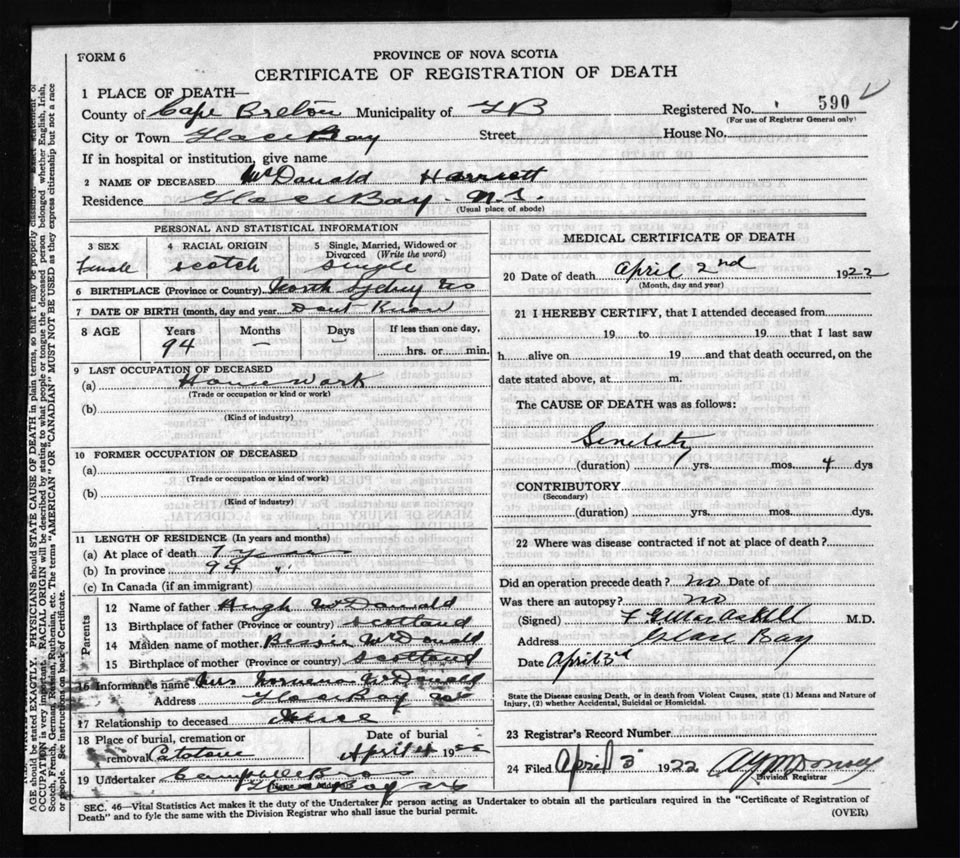 FORM 6
PROVINCE OF NOVA SCOTIA
CERTIFICATE OF REGISTRATION OF DEATH
1 PLACE OF DEATH—
County of Cape Breton Municipality of GB Registered No. 590
(For use of Registrar General only)
City or Town Glace Bay Street House No.
If in hospital or institution, give name
2 NAME OF DECEASED McDonald Harriett
Residence Glace Bay N.S.
(Usual place of abode)
PERSONAL AND STATISTICAL INFORMATION
3 SEX 4 RACIAL ORIGIN 5 Single, Married, Widowed or Divorced (Write the word)
female scotch single
6 BIRTHPLACE (Province or Country) North Sydney NS
7 DATE OF BIRTH (month, day and year) Dont Know
8 AGE Years Months Days If less than one day,
94 — — hrs. or min.
9 LAST OCCUPATION OF DECEASED
(a) House Work
(Trade or occupation or kind or work)
(b)
(Kind of industry)
10 FORMER OCCUPATION OF DECEASED
(a)
(Trade or occupation or kind of work)
(b)
(Kind of industry)
11 LENGTH OF RESIDENCE (In years and months)
(a) At place of death 7 years
(b) In province 94 "
(c) In Canada (if an immigrant)
Parents
12 Name of father Hugh McDonald
13 Birthplace of father (Province or country) Scotland
14 Maiden name of mother Bessie McDonald
15 Birthplace of mother (Province or country) Scotland
16 Informant's name Mrs McDonald
Address Glace Bay
17 Relationship to deceased Niece
18 Place of burial, cremation or removal Date of burial
April 4 1922
19 Undertaker Campbell
(Name and Address) Glace Bay NS
MEDICAL CERTIFICATE OF DEATH
20 Date of death April 2nd 1922
(Month, day and year)
21 I HEREBY CERTIFY, that I attended deceased from
19 to 19 that I last saw
h alive on 19 and that death occurred, on the
date stated above, at m.
The CAUSE OF DEATH was as follows:
Senility
(duration) yrs. mos. 4 dys
CONTRIBUTORY
(Secondary)
(duration) yrs. mos. dys.
22 Where was disease contracted if not at place of death?
Did an operation precede death? no Date of
Was there an autopsy? no
(Signed) M.D.
Address Glace Bay
Date April 3rd
State the Disease causing Death, or in death from Violent Causes, state (1) Means and Nature of
Injury, (2) whether Accidental, Suicidal or Homicidal.
23 Registrar's Record Number
24 Filed April 3 1922
Division Registrar
SEC. 46—Vital Statistics Act makes it the duty of the Undertaker or person acting as Undertaker to obtain all the particulars required in the "Certificate of Registration of
Death" and to fyle the same with the Division Registrar who shall issue the burial permit.
(OVER)
AGE should be stated EXACTLY. PHYSICIANS should STATE CAUSE OF DEATH in plain terms, so that it may be properly classified.
OCCUPATION is very important. RACIAL ORIGIN will be described by stating to what people or tongue the deceased person belonged whether English, Irish,
Scotch, French, German, Russian, Ruthenian, etc. The terms "AMERICAN" OR "CANADIAN" MUST NOT BE USED as they express citizenship but not a race
or people. See instructions on back of Certificate.